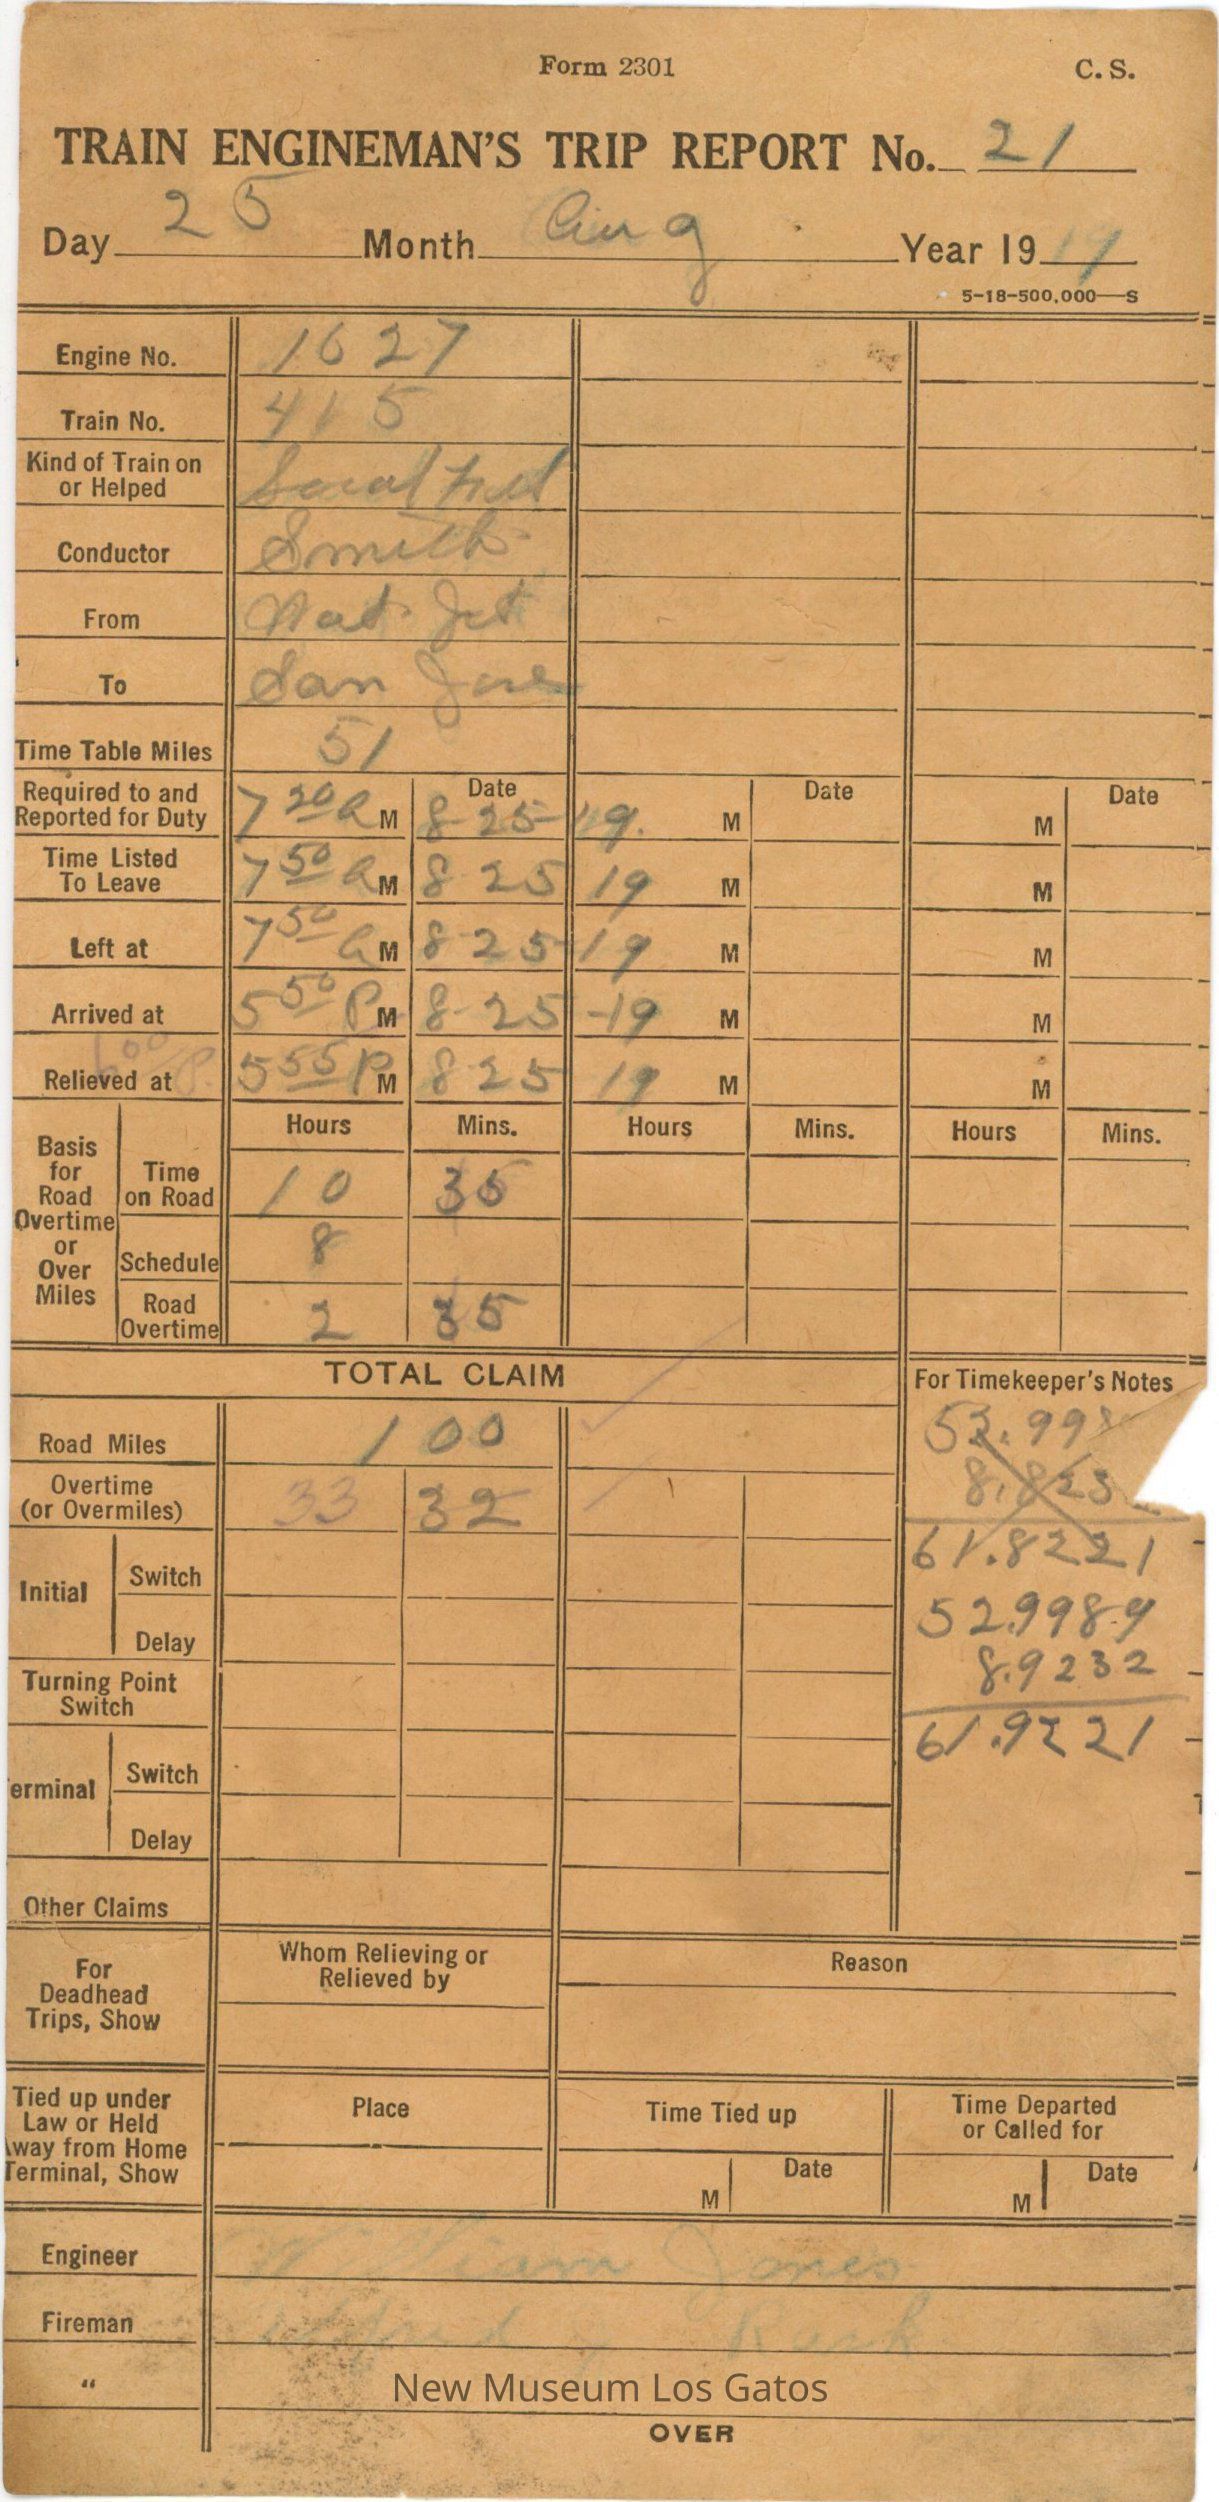 Form 2301 C. S.
TRAIN ENGINEMAN'S TRIP REPORT No. 21
Day 25 Month Aug Year 19 19
5-18-500,000—S
Engine No. 1627
Train No. 415
Kind of Train on
or Helped Local Frt
Conductor Smith
From Wat Jct
To San Jose
Time Table Miles 51
Date Date Date
Required to and
Reported for Duty 7 20 A M 8-25-19. M M
Time Listed
To Leave 7 50 A M 8 25 19 M M
Left at 7 50 A M 8-25-19 M M
Arrived at 5 50 P M 8-25-19 M M
6 00 P.
Relieved at 5 55 P M 8 25 19 M M
Hours Mins. Hours Mins. Hours Mins.
Basis
for
Road
Overtime
or
Over
Miles
Time
on Road 10 35
Schedule 8
Road
Overtime 2 35
TOTAL CLAIM
For Timekeeper's Notes
Road Miles 100
Overtime
(or Overmiles) 33 32
Initial
Switch
Delay
Turning Point
Switch
erminal
Switch
Delay
Other Claims
61.8221
52.9989
8.9232
61.9221
For
Deadhead
Trips, Show
Whom Relieving or
Relieved by
Reason
Tied up under
Law or Held
way from Home
Terminal, Show
Place
Time Tied up
Time Departed
or Called for
M Date M Date
Engineer William Jones
Fireman
"
New Museum Los Gatos
OVER